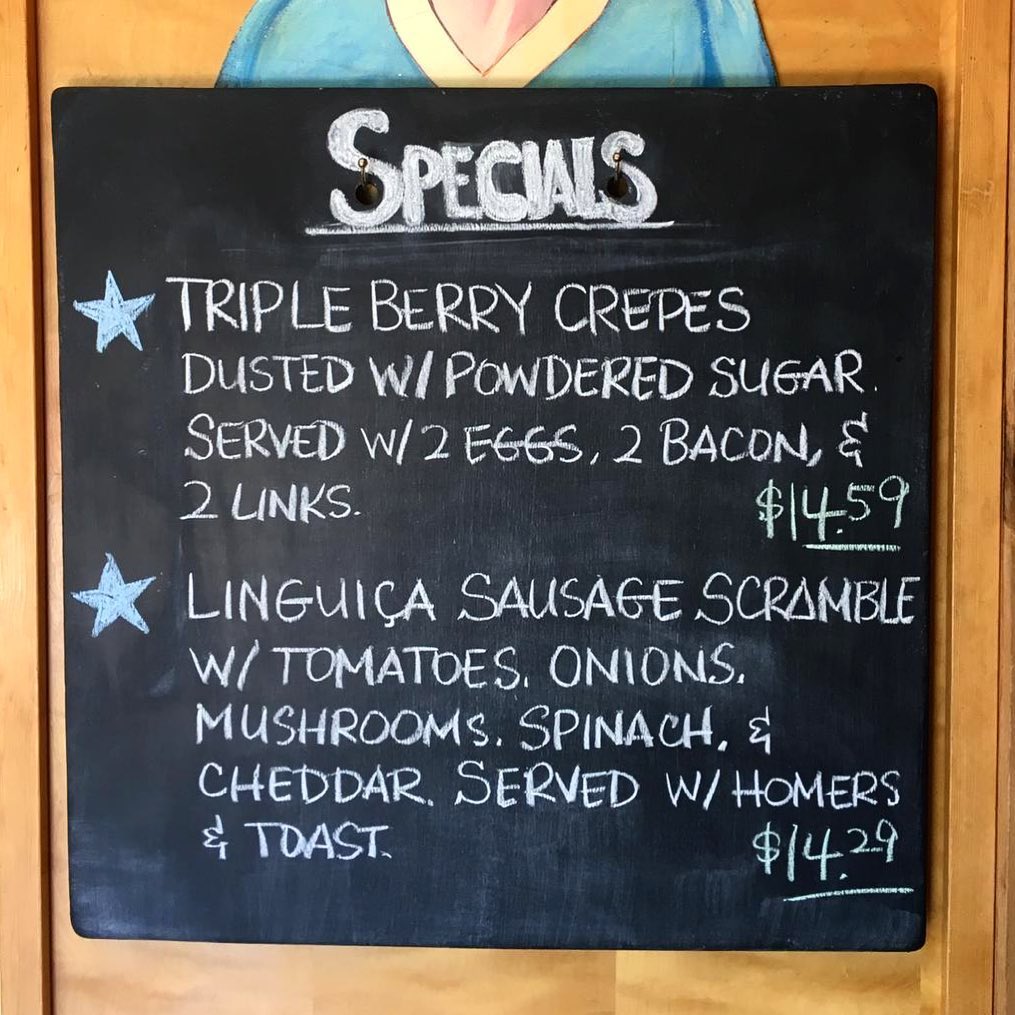 SPECIALS
TRIPLE BERRY CREPES
DUSTED W/ POWDERED SUGAR.
SERVED W/ 2 EGGS, 2 BACON, &
2 LINKS. $14.59
LINGUIÇA SAUSAGE SCRAMBLE
W/ TOMATOES, ONIONS,
MUSHROOMS, SPINACH, &
CHEDDAR. SERVED W/ HOMERS
& TOAST. $14.29